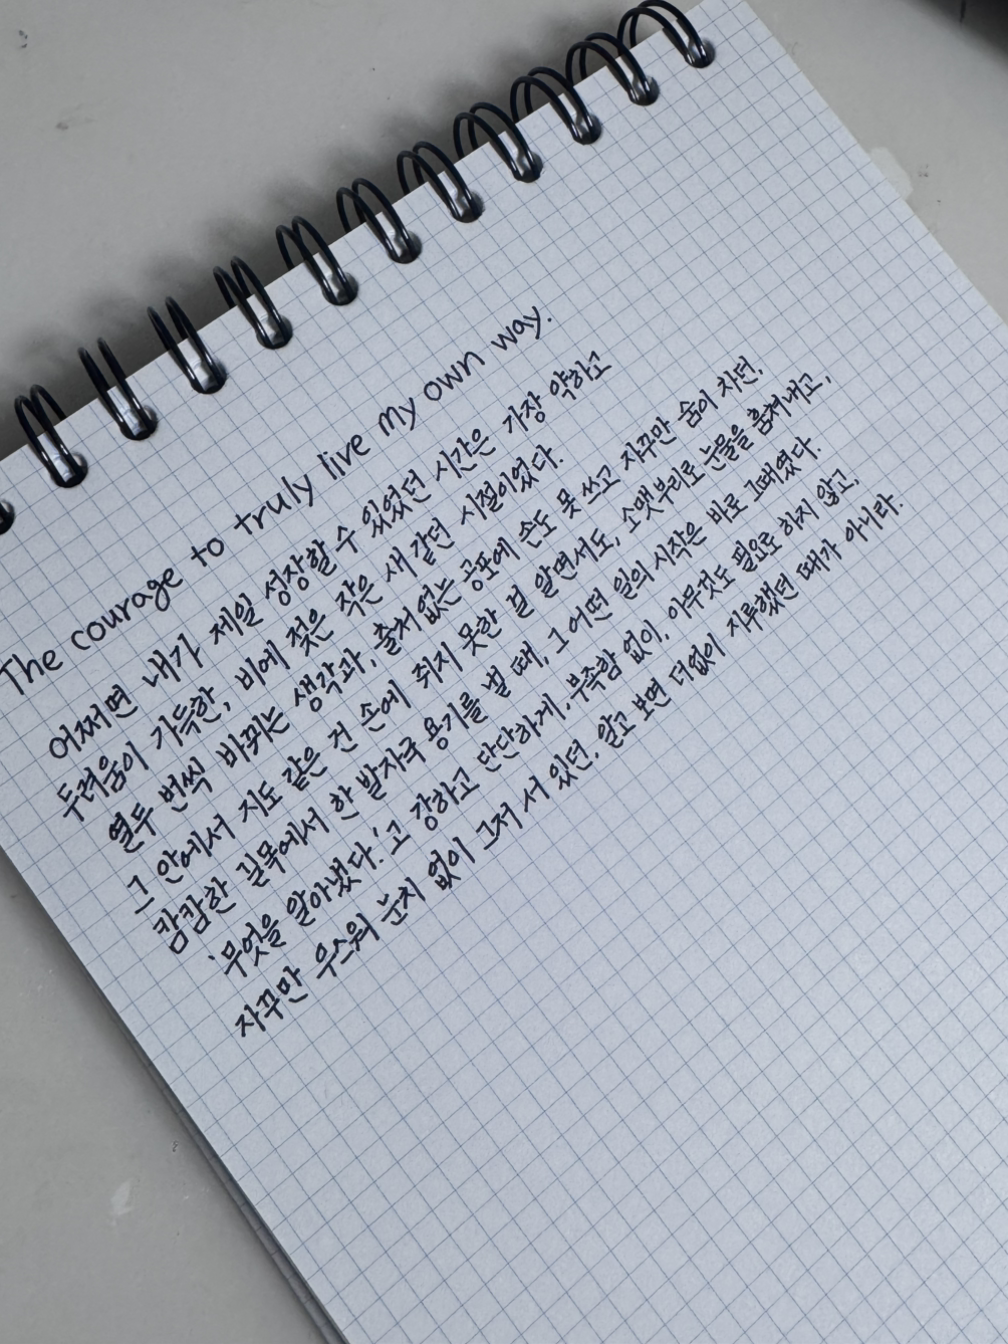 The courage to truly live my own way.
어쩌면 내가 제일 성장할 수 있었던 시간은 가장 약하고
두려움이 가득한, 비에 젖은 작은 새 같던 시절이었다.
열두 번씩 바뀌는 생각과, 출처 없는 공포에 손도 못 쓰고 자꾸만 숨이 차던,
그 안에서 지도 같은 건 손에 쥐지 못한 걸 알면서도, 소맷부리로 눈물을 훔쳐내고,
캄캄한 길목에서 한 발자국 용기를 낼 때, 그 어떤 일의 시작은 바로 그때였다.
'무엇을 알아냈다.'고 강하고 단단하게, 부족함 없이, 아무것도 필요로 하지 않고,
자꾸만 우스워 눈치 없이 그저 서 있던, 알고 보면 더없이 지루했던 때가 아니라.